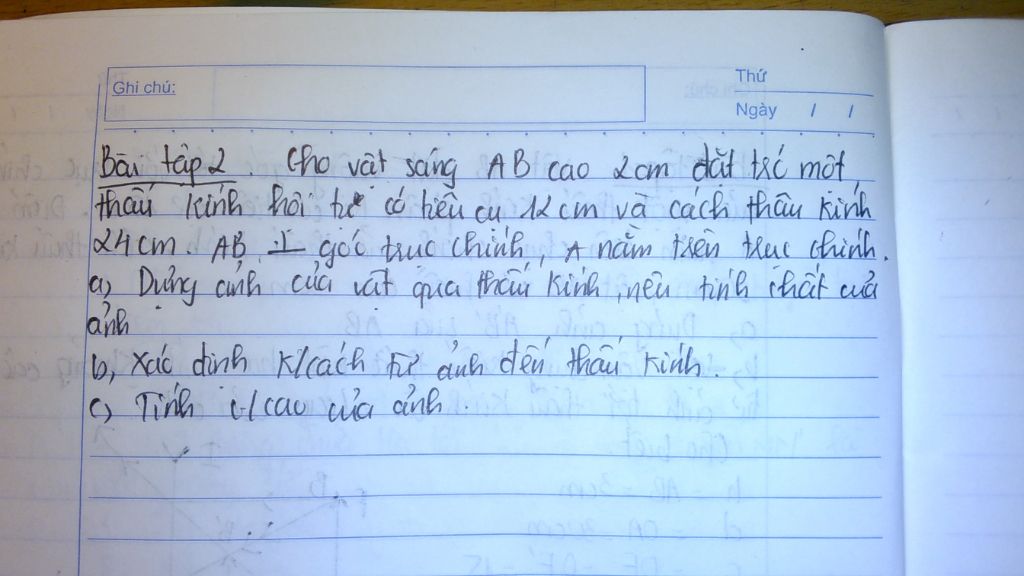 Ghi chú:
Thứ
Ngày / /
Bài tập 2. Cho vật sáng AB cao 2cm đặt trc một
thấu kính hội tụ có tiêu cự 12cm và cách thấu kính
24cm. AB ⊥ góc trục chính, A nằm trên trục chính.
a, Dựng ảnh của vật qua thấu kính, nêu tính chất của
ảnh
b, Xác định k/cách từ ảnh đến thấu kính.
c, Tính c/cao của ảnh.